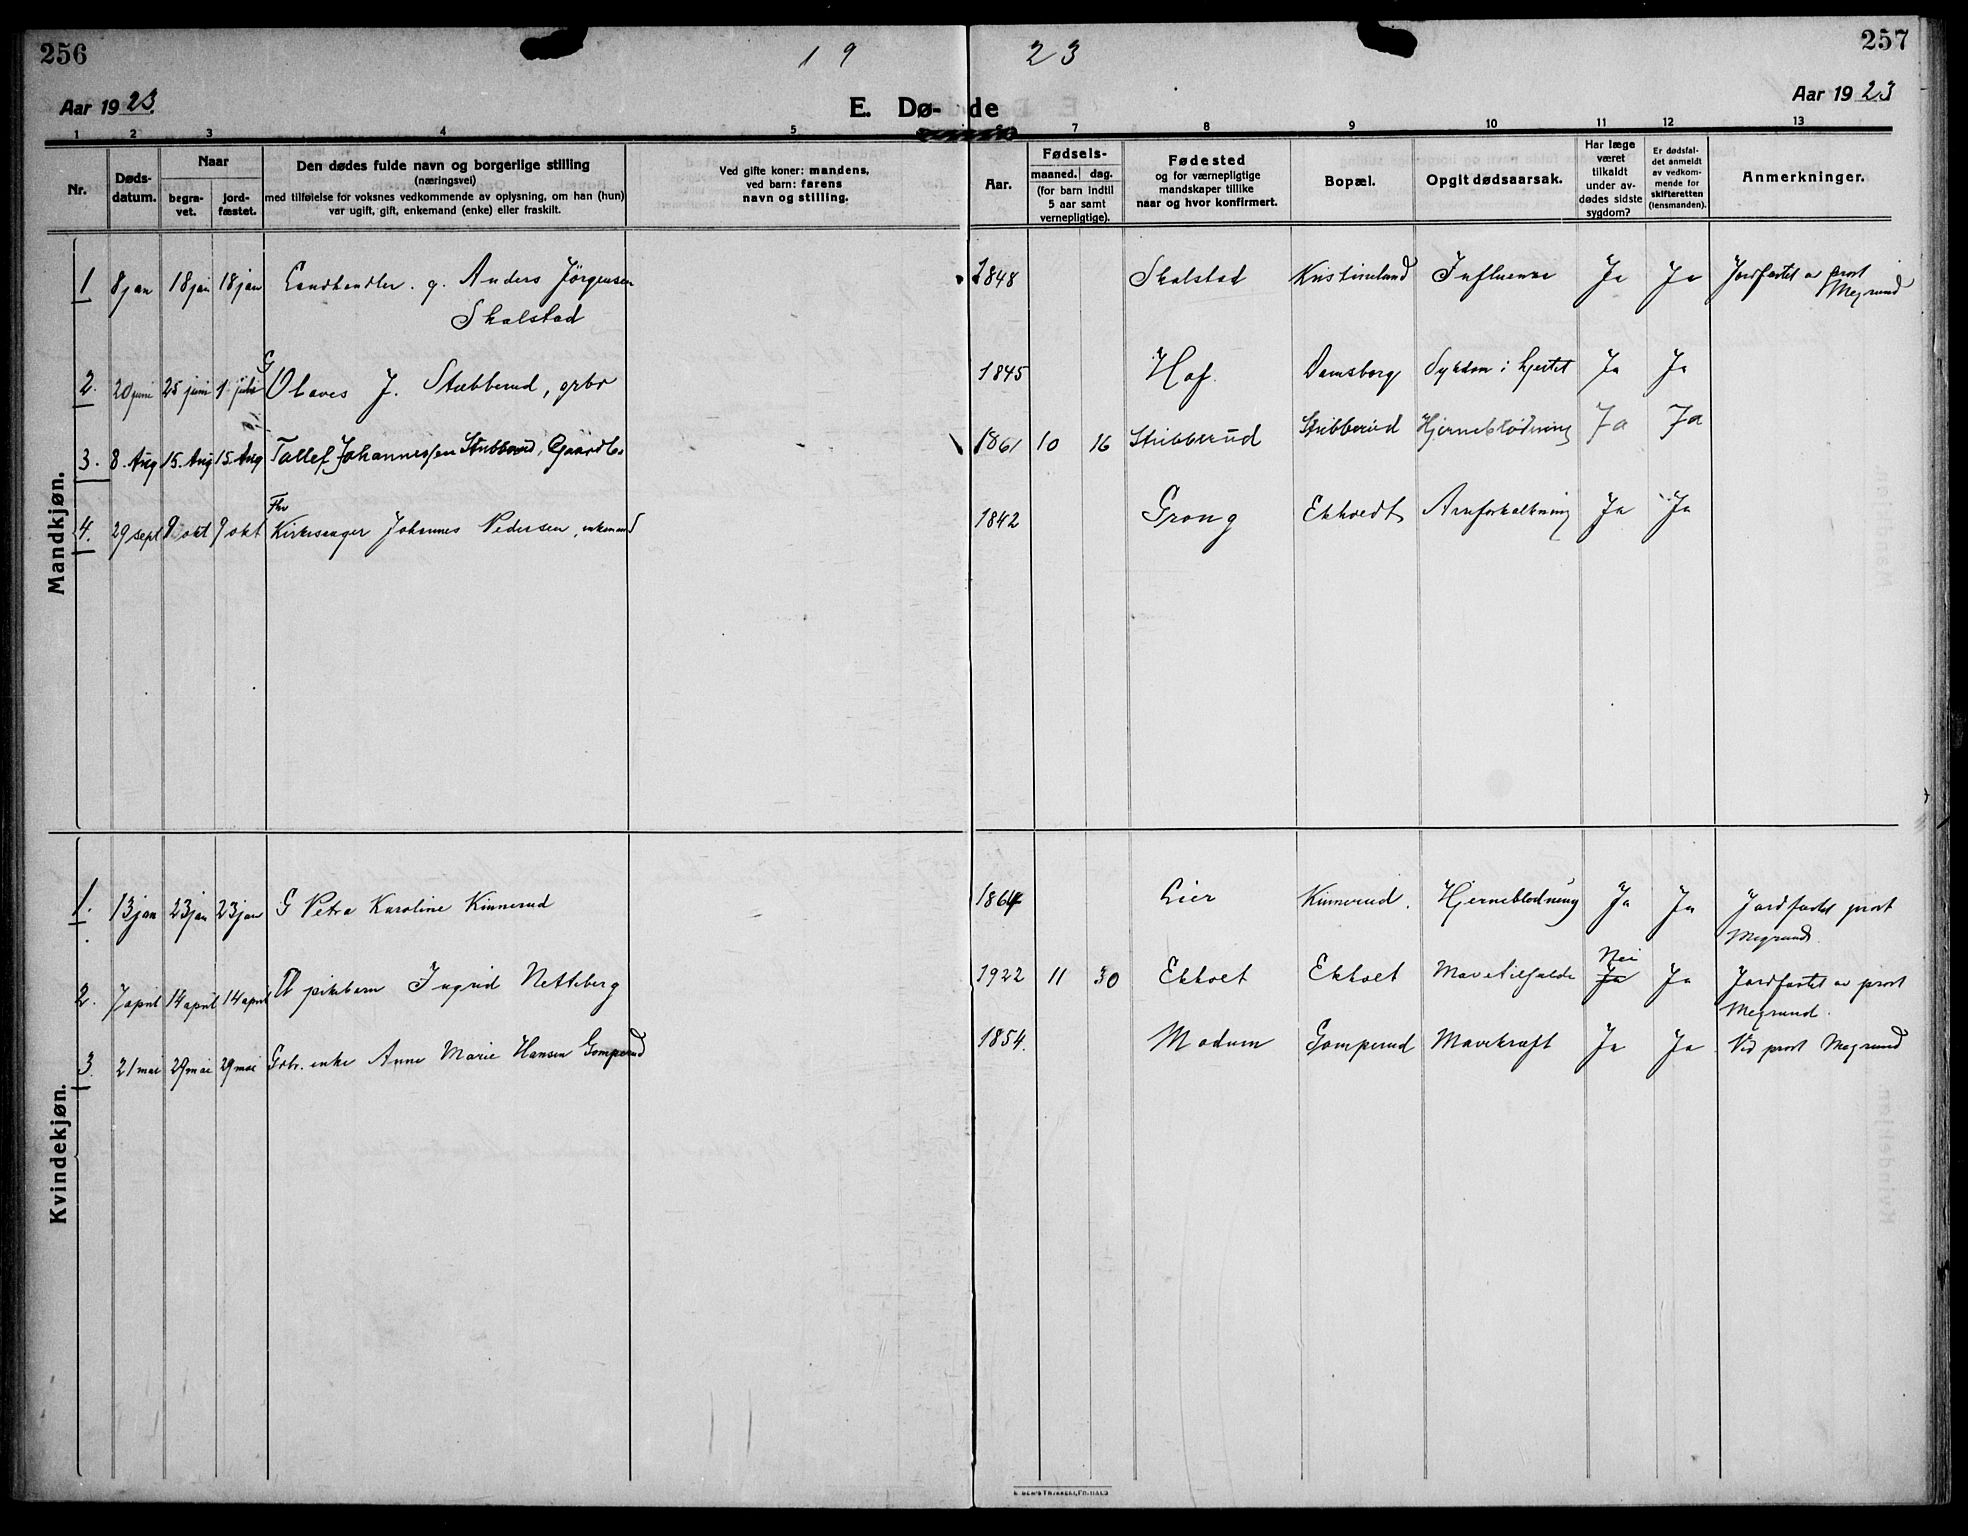 256
19 23
257
Aar 1923.
E. Dø- de
Aar 1923
1 2 3 4 5 7 8 9 10 11 12 13
Nr.
Døds-
datum.
Naar
begra-
vet.
jord-
fæstet.
Den dødes fulde navn og borgerlige stilling
(næringsvei)
med tilføielse for voksnes vedkommende av oplysning, om han (hun)
var ugift, gift, enkemand (enke) eller fraskilt.
Ved gifte koner: mandens,
ved barn: farens
navn og stilling.
Aar.
Fødsels-
maaned. dag.
(for barn indtil
5 aar samt
vernepligtige).
Fødested
og for værnepligtige
mandskaper tillike
naar og hvor konfirmert.
Bopæl.
Opgit dødsaarsak.
Har læge
været
tilkaldt
under av-
dødes sidste
sygdom?
Er dødsfal-
det anmeldt
av vedkom-
mende for
skifteretten
(lensmanden).
Anmerkninger.
Mandkjøn.
1 8 jan 18 jan 18 jan Landhandler. g. Anders Jørgensen
Skalstad
1848 Skalstad Kristineland Influense Ja Ja Jordfæstet av prost
Megrund
2. 20 juni 25 juni 1. juli G
Olaves J. Stubberud, grbr
1845 Hof. Damsborg Sykdom i hjertet Ja Ja
3. 8. Aug 15. Aug 15. Aug Tollef Johannessen Stubberud, Gaardb.
1861 10 16 Stubberud Stubberud Hjerneblødning Ja Ja
4. 29 sept 9 okt 9 okt Fhv
Kirkesanger Johannes Pedersen, enkemand
1842 Grong Ekhoedt Aareforkalkning Ja Ja
Kvindekjøn.
1. 13 jan 23 jan 23 jan G Petra Karoline Kinnerud
1864 Lier Kinnerud. Hjerneblødning Ja Ja Jordfæstet prost
Megrund.
2. 7 april 14 april 14 april pikebarn Ingrid Netteberg
1922 11 30 Ekhoet Ekhoet Mavetilfælde Nei
Ja Ja Jordfæstet av prost
Megrund.
3. 21 mai 29 mai 29 mai Grbr. enke Anne Marie Hansen Gomperud
1854. Modum Gomperud Mavekræft Ja Ja Ved prost Megrund